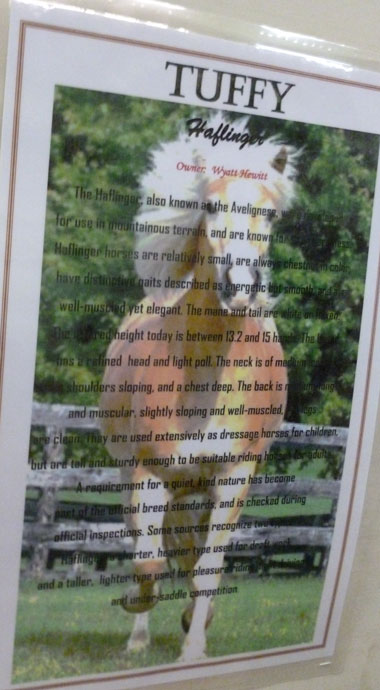 TUFFY
Haflinger
Owner: Wyatt Hewitt
The Haflinger, also known as the Avelignese,
for use in mountainous terrain, and are known for
Haflinger horses are relatively small, are always chestnut in color,
have distinctive gaits described as energetic but smooth, and
well-muscled yet elegant. The mane and tail are white or flaxen.
The desired height today is between 13.2 and 15 hands. The
has a refined head and light poll. The neck is of medium
shoulders sloping, and a chest deep. The back is
and muscular, slightly sloping and well-muscled. legs
are clean. They are used extensively as dressage horses for children,
but are tall and sturdy enough to be suitable riding horses for adults.
A requirement for a quiet, kind nature has become
part of the official breed standards, and is checked during
official inspections. Some sources recognize two
Haflinger, a shorter, heavier type used for draft work
and a taller, lighter type used for pleasure riding,
and under-saddle competition